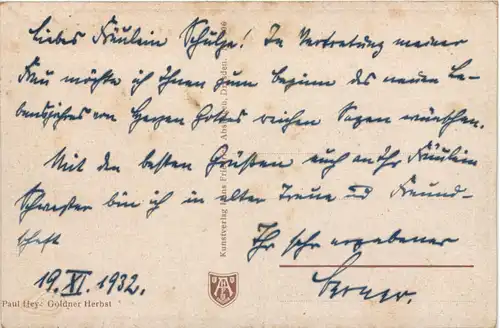 Liebes Fräulein Schulze! In Vertretung meiner
Frau möchte ich Ihnen zum Beginn des neuen Le-
bensjahres von Herzen Gottes reichen Segen wünschen.
Mit den besten Grüßen auch an Ihr Fräulein
Schwester bin ich in alter Treue und Freund-
schaft
Ihr sehr ergebener
19. XI. 1932.
Paul Hey: Goldner Herbst
Kunstverlag Dresden.